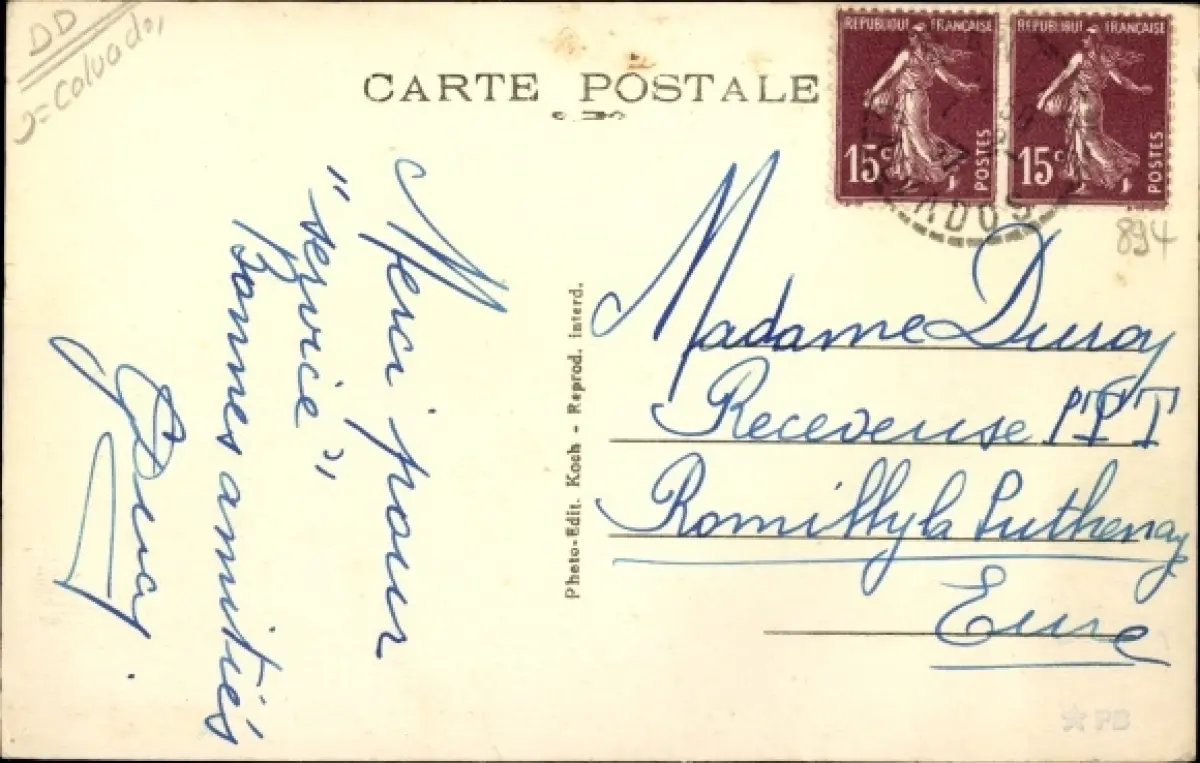 DD
J = Calvados
CARTE POSTALE
REPUBLIQUE FRANÇAISE
15c
POSTES
REPUBLIQUE FRANÇAISE
15c
POSTES
CALVADOS
894
Merci pour
"service"
Bonnes amitiés
Photo-Edit. Koch - Reprod. interd.
Madame Duroy
Receveuse PTT
Romilly la Puthenay
Eure
PB